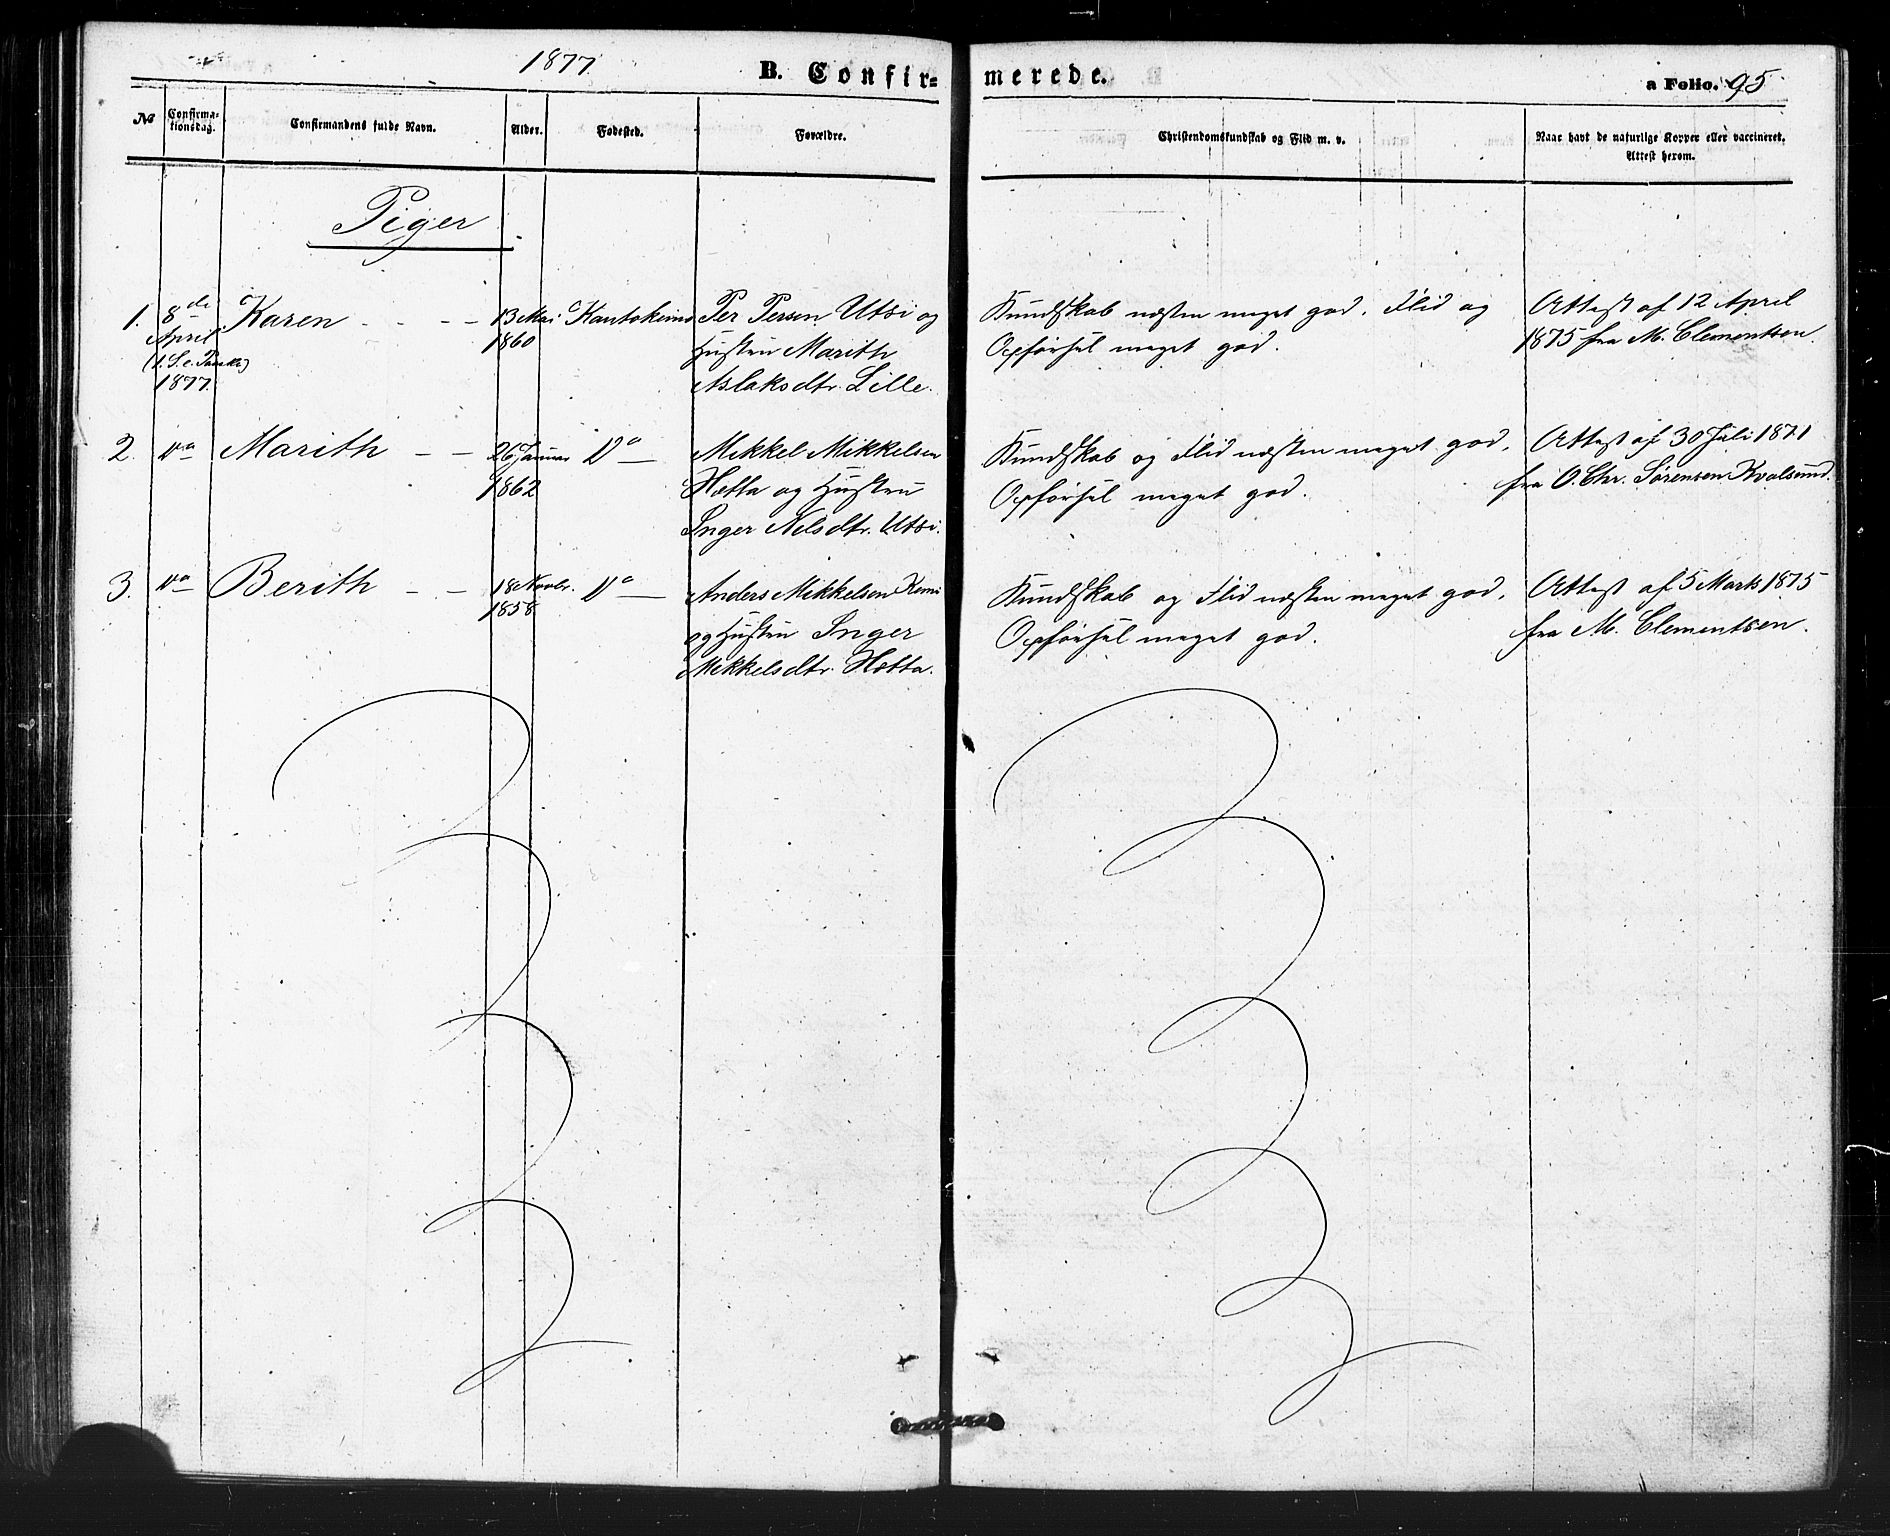 1877
B. Confir-
merede.
a Folio. 95
No
Confirma-
tionsdag.
Confirmandens fulde Navn.
Alder.
Fødested.
Forældre.
Christendomskundskab og Flid m. v.
Naar havt de naturlige Kopper eller vaccineret.
Attest herom.
Piger
1. 8de Karen 13 Mai Kautokeino Per Persen Utsi og Kundskab næsten meget god. Flid og Attest af 12 April
April 1860 Hustru Marith Opførsel meget god. 1875 fra M. Clementsen.
(1. S. e. Paaske) Aslaksdtr. Lille.
1877.
2. Do Marith 26 Januar Do Mikkel Mikkelsen Kundskab og Flid næsten meget god, Attest af 30 Juli 1871
1862 Hætta og Hustru Opførsel meget god. fra O. Chr. Sørensen Kvalsund.
Inger Nelsdtr. Utsi.
3. Do Berith 18 Novbr. Do Anders Mikkelsen Kemi Kundskab og Flid næsten meget god, Attest af 5 Marts 1875
1858 og Hustru Inger Opførsel meget god. fra M. Clementsen.
Mikkelsdtr. Hætta.